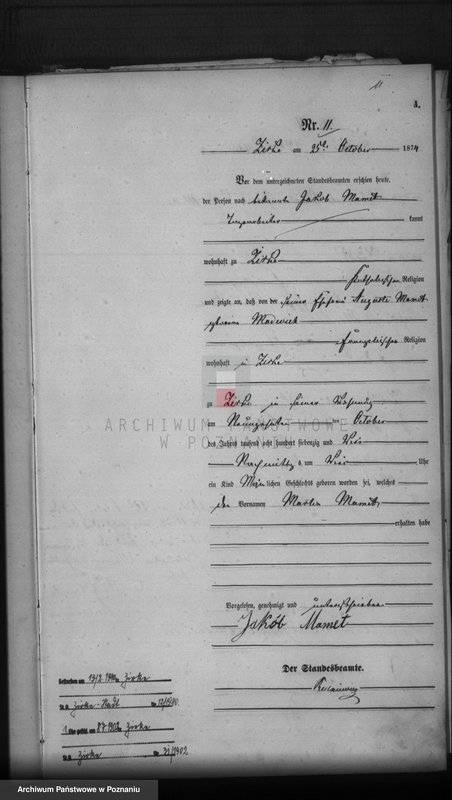 11
A.
Nr. 11.
Zirke am 25ten October 1874
Vor dem unterzeichneten Standesbeamten erschien heute,
der Person nach bekannt Jakob Mamet
kannt
wohnhaft zu Zirke
katholischer Religion
und zeigte an, daß von der seiner Ehefrau Auguste Mamet
geborene
evangelischer Religion
wohnhaft in Zirke
zu Zirke in seiner Wohnung
am Neunzehnten October
des Jahrs tausend acht hundert siebenzig und Vier
Nachmittags um Vier Uhr
ein Kind Männlichen Geschlechts geboren worden sei, welches
den Vornamen Martin Mamet
erhalten habe
Vorgelesen, genehmigt und unterschrieben
Jakob Mamet
Der Standesbeamte.
Zirke
Nr. Zirke-Stadt
Zirke
Nr. Zirke No 21/1902.
ARCHIWUM PAŃSTWOWE
W POZNANIU
Archiwum Państwowe w Poznaniu